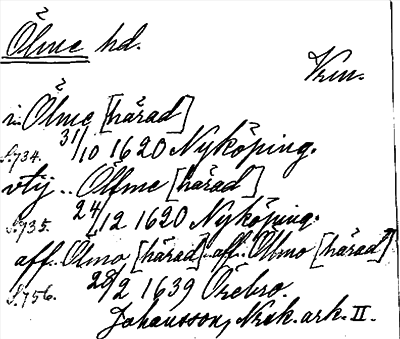 Ölme hd.
Vrm.
i Ölme [härad]
S.734. 31/10 1620 Nyköping.
vtij .. Ölfme [härad]
S.735. 24/12 1620 Nyköping.
aff..Olmo [härad]..aff..Olbmo [härad]
S.756. 28/2 1639 Örebro.
Johansson, Nrk. ark. II.